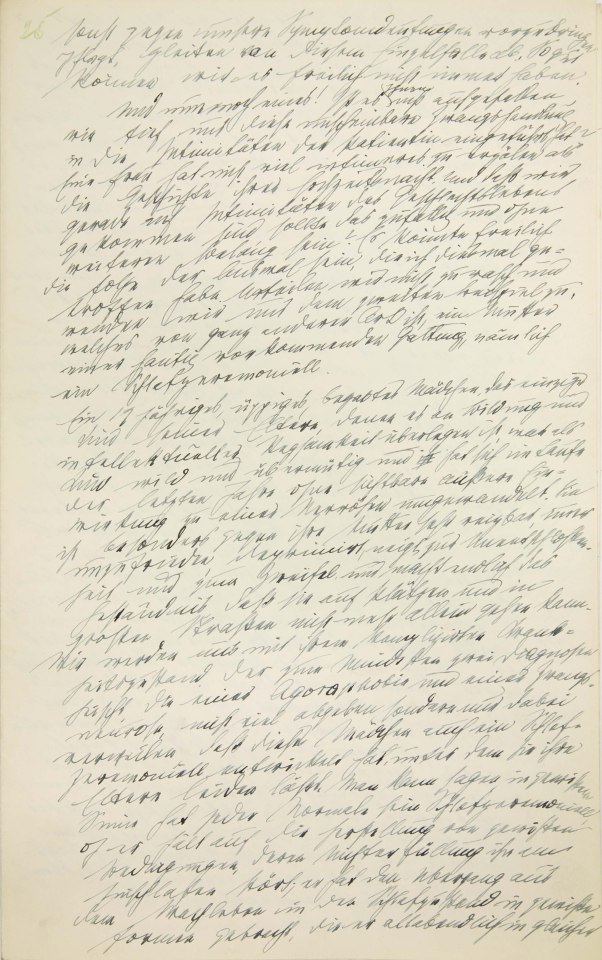 25
sonst gegen unsere Symptomdeutungen vorzubringen
pflegt, gleiten von diesem Einzelfalle ab. So gut
können wir es freilich nicht immer haben.
Und nun noch eines! Ist es Ihnen nicht aufgefallen,
wie tief uns diese unscheinbare Zwangshandlung
in die Intimitäten der Patientin eingeführt hat
Eine Frau hat nicht viel intimeres zu erzälen als
die Geschichte ihrer Hochzeitsnacht und daß wir
gerade auf Intimitäten des Geschlechtslebens
gekommen sind sollte das zufällig und ohne
weiteren Belang sein? Es könnte freilich
die Folge der Auswal sein, die ich diesmal ge-
troffen habe. Urteilen wir nicht zu rasch und
wenden wir uns dem zweiten Beispiel zu,
welches von ganz anderer Art ist, ein Muster
einer häufig vorkommenden Gattung, nämlich
ein Schlafzeremoniell.
Ein 19 jähriges, üppiges, begabtes Mädchen, das einzige
Kind seiner Eltern, denen es an Bildung und
intellektueller Regsamkeit überlegen ist, war als
Kind wild und übermütig und hat sich im Laufe
der letzten Jahre ohne sichtbare äußere Ein-
wirkung zu einer Nervösen umgewandelt. Sie
ist besonders gegen ihre Mutter sehr reizbar, immer
unzufrieden, deprimirt, neigt zur Unentschlossen-
heit und zum Zweifel und macht endlich das
Geständnis, daß sie auf Plätzen und in
größeren Straßen nicht mehr allein gehen kann.
Wir werden uns mit ihrem komplizirten Krank-
heitszustand, der zum Mindesten zwei Diagnosen
heischt, die einer Agoraphobie und einer Zwangs-
neurose, nicht viel abgeben sondern nur dabei
verweilen, daß dieses Mädchen auch ein Schlaf-
zeremoniell entwickelt hat, unter dem sie ihre
Eltern leiden läßt. Man kann sagen, in gewissem
Sinne hat jeder Normale sein Schlafzeremoniell
oder er hält auf die Herstellung von gewissen
Bedingungen, deren Nichterfüllung ihn am
Einschlafen stört; er hat den Übergang aus
dem Wachleben in den Schlafzustand in gewisse
Formen gebracht, die er allabendlich in gleicher